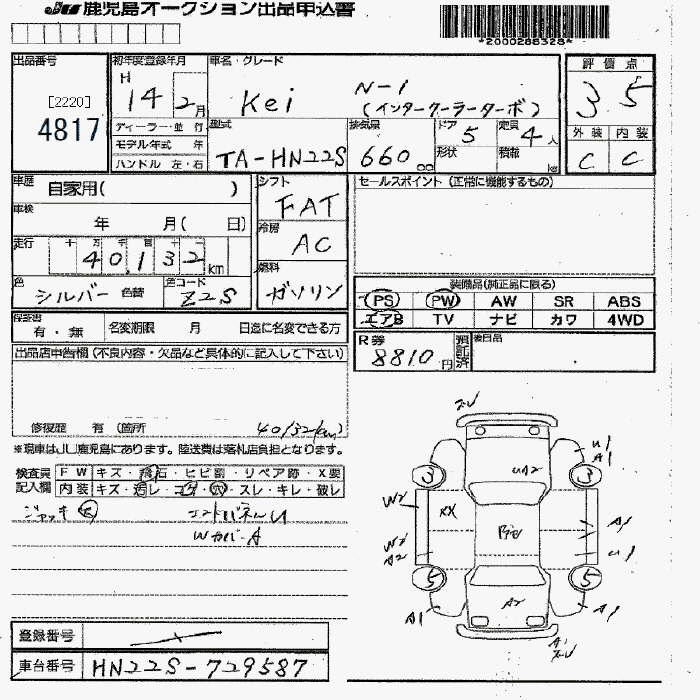 JU 鹿児島オークション出品申込書
*2000288328*
出品番号
[2220]
4817
初年度登録年月
H
14 2月
車名・グレード
Kei N-1
(インタークーラーターボ)
評価点
3.5
外装 内装
C C
ディーラー・並行
モデル年式 年
ハンドル 左・右
型式
TA-HN22S
排気量
660 cc
ドア
5
形状
定員
4人
積載
kg
車歴 自家用( )
車検 年 月( 日)
走行 十万千百十一
40,132 km
色
シルバー 色替
色コード
Z2S
シフト
FAT
冷房
AC
燃料
ガソリン
セールスポイント (正常に機能するもの)
装備品(純正品に限る)
PS PW AW SR ABS
エアB TV ナビ カワ 4WD
保証書
有・無
名変期限 月 日迄に名変できる方
R券
8810円
預託済
後日品
出品店申告欄 (不良内容・欠品など具体的に記入して下さい)
修復歴 有 (箇所
40132km)
※現車はJU鹿児島にあります。陸送費は落札店負担となります。
検査員記入欄
FW キズ・飛石・ヒビ割・リペア跡・X要
内装 キズ・汚レ・コゲ・穴・スレ・キレ・破レ
ジャッキ欠
Wカバー A
登録番号
車台番号 HN22S-729587
U1
A1
3 3
UA2
W2
XX
W2
A2
A1
U1
5 5
A2
A1 A1
A1